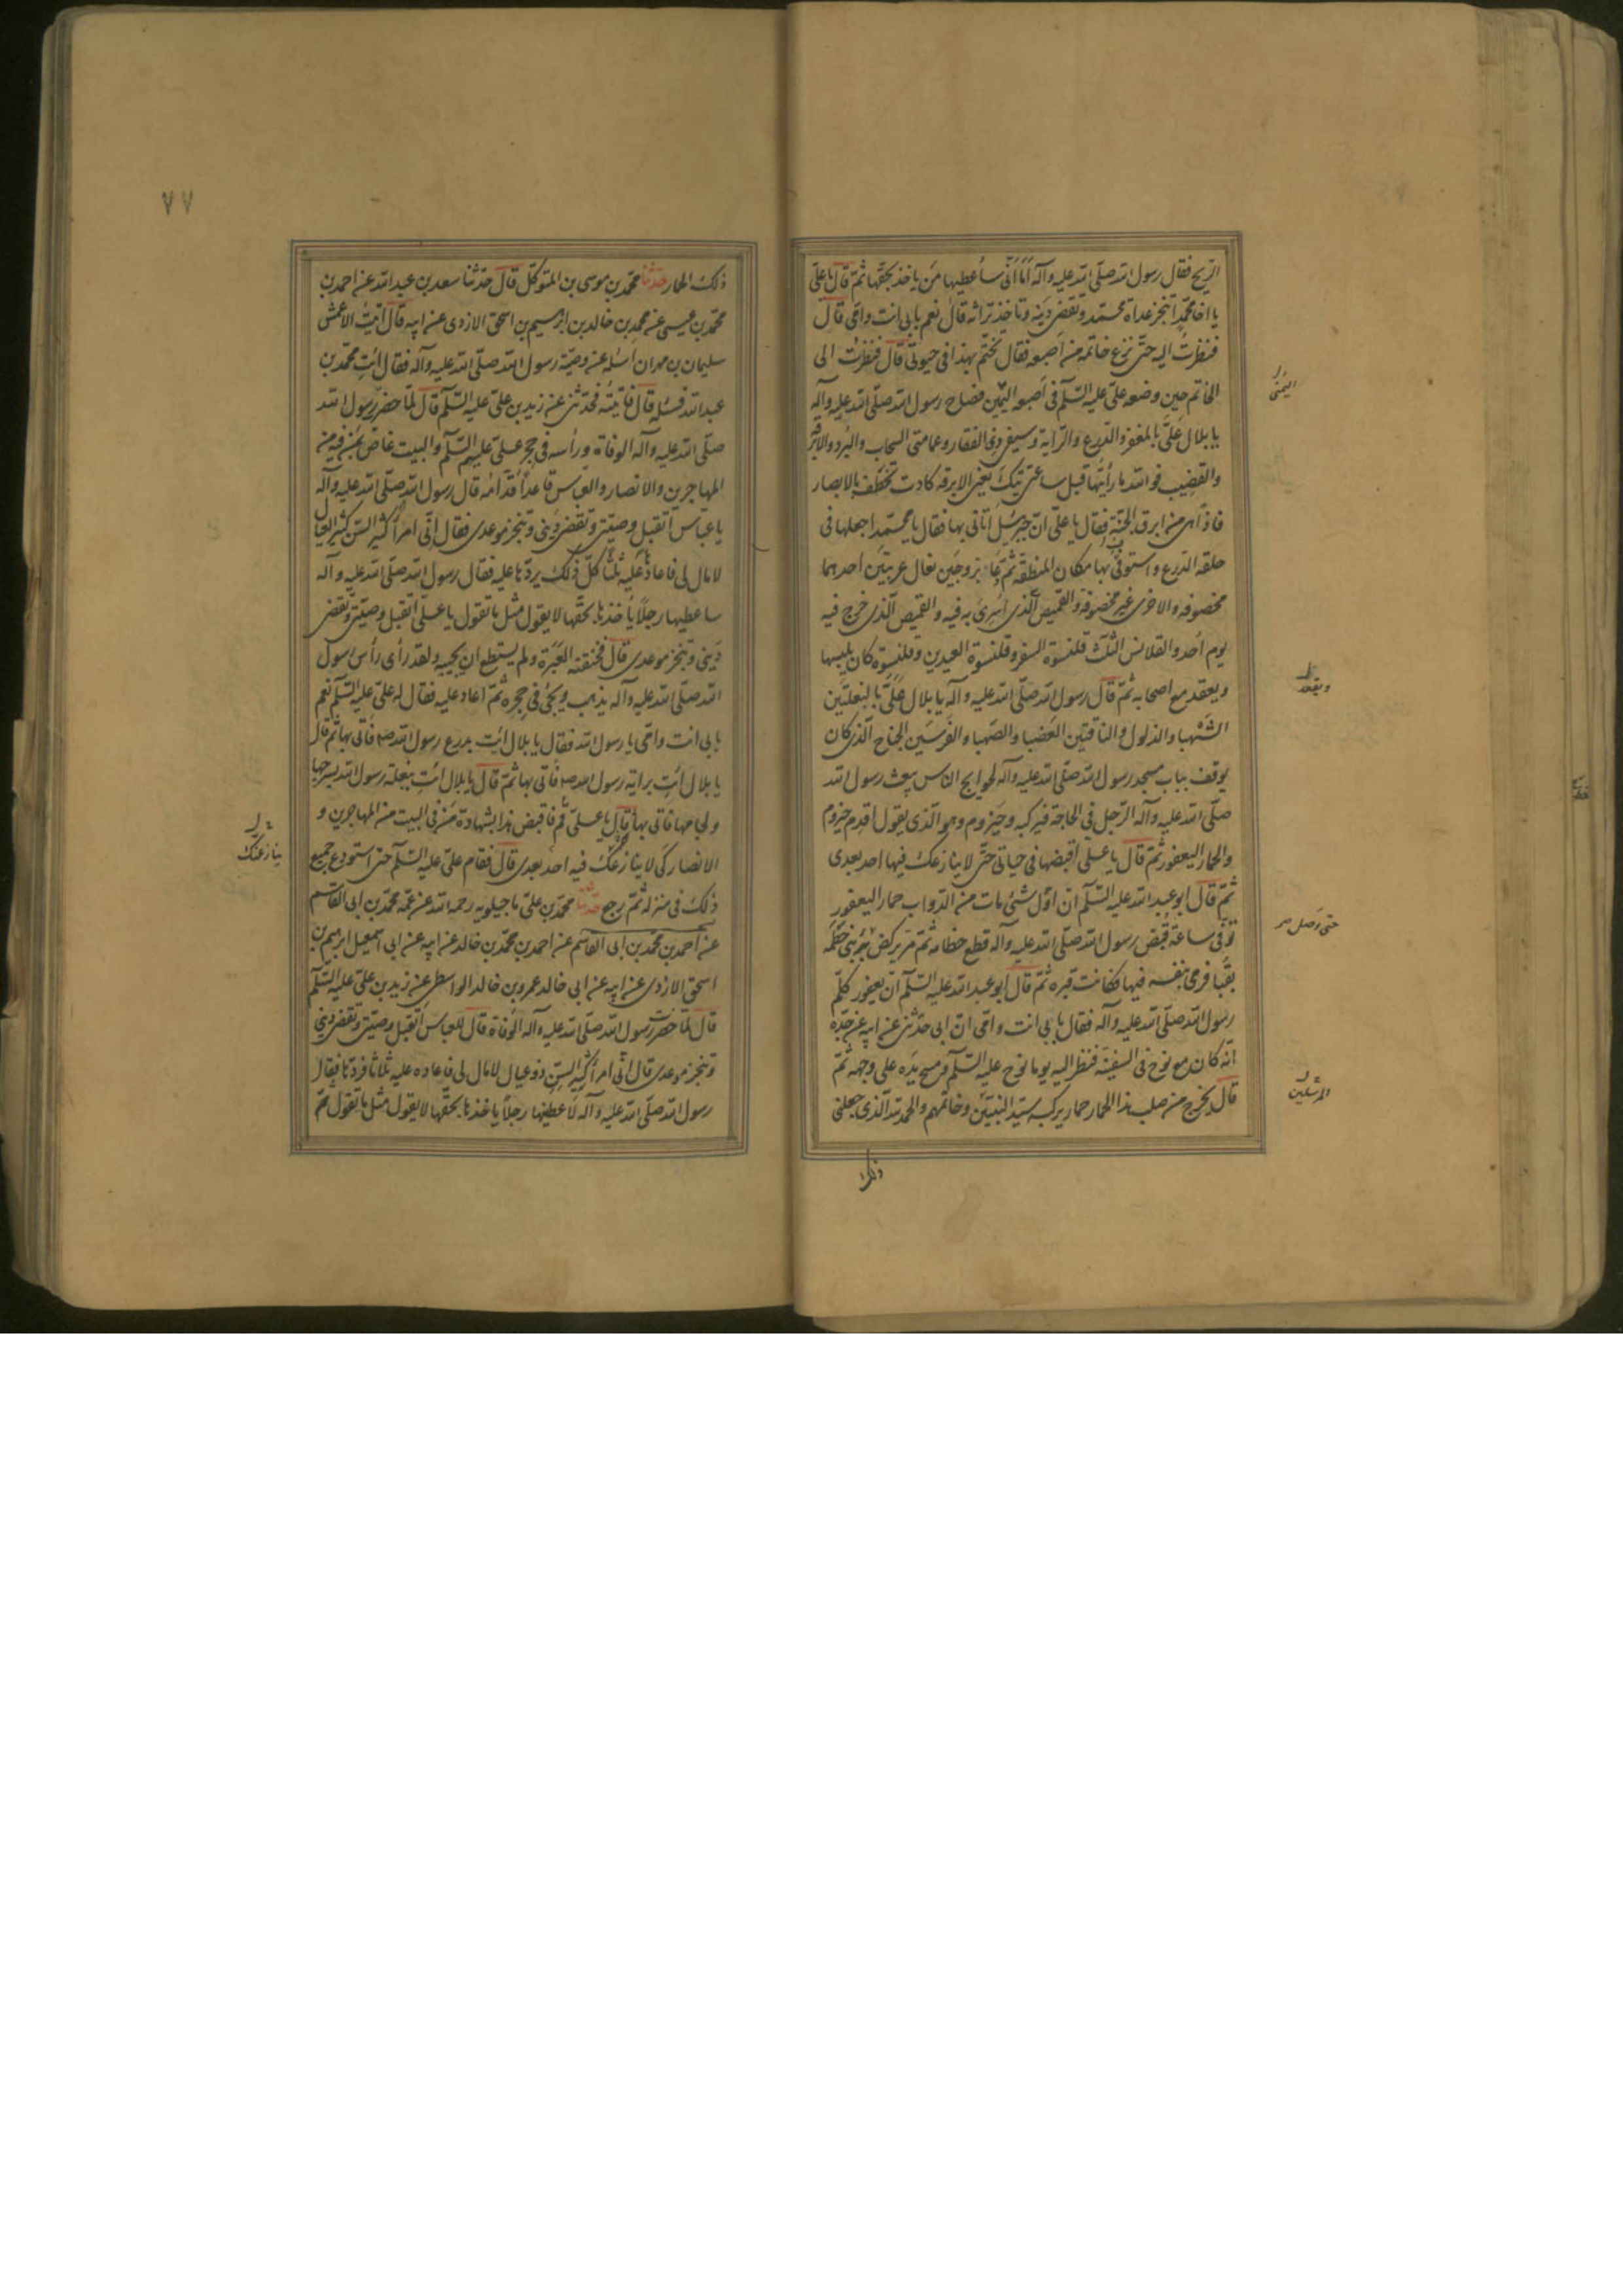 الريح فقال رسول الله صلّى الله عليه وآله أما أنّى ساعطيها من ياخذ بحقّها ثمّ قال يا علىّ
يا اخا محمّد أتنجز عداة محمّد وتقضى دينه وتاخذ تراثه قال نعم بابى انت وامّى قال
فنظرت اليه حتّى نزع خاتمه من اصبعه فقال تختّم بهذا فى حيوتى قال فنظرت الى
الخاتم حين وضعه علىّ عليه السّلم فى اصبعه اليمين فصاح رسول الله صلّى الله عليه وآله
يا بلال علىّ بالمغفر والدّرع والرّاية وسيفى ذى الفقار وعمامتى السحاب والبرد والابرقه
والقضيب فوالله ما رأيتها قبل ساعتى تيك يعنى الابرقه كادت تخطف بالابصار
فاذا هى من ابرق الجنّة فقال يا علىّ انّ جبرئيل أتانى بها فقال يا محمّد اجعلها فى
حلقه الدّرع واستوفر بها مكان المنطقه ثمّ دعا بزوجين نعال عربيّين احدهما
مخصوفه والاخرى غير مخصوفة والقميص الّذى اسرى به فيه والقميص الّذى خرج فيه
يوم أحد والقلانس الثلث قلنسوة السفر وقلنسوة العيدين وقلنسوة كان يلبسها
ويعقد مع اصحابه ثمّ قال رسول الله صلّى الله عليه وآله يا بلال علىّ بالبغلتين
الشهبا والدلول والناقتين العضبا والصهبا والفرسين الجناح الّذى كان
يوقف بباب مسجد رسول الله صلّى الله عليه وآله لحوايج الناس يبعث رسول الله
صلّى الله عليه وآله الرّجل فى الحاجة فيركبه وحيزوم وهو الّذى يقول اقدم حيزوم
والحمار اليعفور ثمّ قال يا علىّ اقبضها فى حياتى حتّى لا ينازعك فيها احد بعدى
ثمّ قال ابو عبد الله عليه السّلم انّ اوّل شئ مات من الدّواب حمار اليعفور
توفّى ساعة قبض رسول الله صلّى الله عليه وآله قطع خطامه ثمّ مرّ يركض بئر بنى خطمه
بقبا فرمى بنفسه فيها فكانت قبره ثمّ قال ابو عبد الله عليه السّلم انّ يعفور كلّم
رسول الله صلّى الله عليه وآله فقال بابى انت وامّى انّ ابى حدّثنى عن ابيه عن جدّه
انّه كان مع نوح فى السفينة فنظر اليه يوما نوح عليه السّلم ومسح يده على وجهه ثمّ
قال يخرج من صلب هذا الحمار حمار يركبه سيّد النبيّين وخاتمهم والحمد لله الّذى جعلنى
ذلك
اليمنى
ويقعد
حتى وصل
المرسلين
٧٧
ذلك الحمار حدثنا محمّد بن موسى بن المتوكّل قال حدّثنا سعد بن عبد الله عن احمد بن
محمّد بن عيسى عن محمد بن خالد بن ابرهيم بن اسحق الازدى عن ابيه قال اتيت الاعمش
سليمان بن مهران اسئله عن وصيّة رسول الله صلّى الله عليه وآله فقال ائت محمّد بن
عبد الله فسئله قال فاتيته فحدّثنى عن زيد بن علىّ عليه السّلم قال لمّا حضر رسول الله
صلّى الله عليه وآله الوفاة ورأسه فى حجر علىّ عليهم السّلم والبيت غاصّ بمن فيه من
المهاجرين والانصار والعبّاس قاعدا قدّامه قال رسول الله صلّى الله عليه وآله
يا عبّاس أتقبل وصيّتى وتقضى دينى وتنجز موعدى فقال انّى امرأ كبير السنّ كثير العيال
لا مال لى فاعادها عليه ثلثا كلّ ذلك يردّها عليه فقال رسول الله صلّى الله عليه وآله
ساعطيها رجلا يأخذها بحقّها لا يقول مثل ما تقول يا علىّ اتقبل وصيّتى وتقضى
دينى وتنجز موعدى قال فخنقته العبرة ولم يستطع ان يجيبه ولقد رأى رأس رسول
الله صلّى الله عليه وآله يذهب ويجئ فى حجره ثمّ اعاد عليه فقال له علىّ عليه السّلم نعم
بابى انت وامّى يا رسول الله فقال يا بلال ائت بدرع رسول الله صه فاتى بها ثمّ قال
يا بلال ائت براية رسول الله صه فاتى بها ثمّ قال يا بلال ائت ببغلة رسول الله بسرجها
ولجامها فاتى بها ثمّ قال يا علىّ قم فاقبض هذا بشهادة من فى البيت من المهاجرين و
الانصار كى لا ينازعك فيه احد بعدى قال فقام علىّ عليه السّلم حتى استودع جميع
ذلك فى منزله ثمّ رجع حدثنا محمّد بن علىّ ماجيلويه رحمه الله عن عمّه محمّد بن ابى القاسم
عن احمد بن محمّد بن ابى القاسم عن احمد بن محمّد بن خالد عن ابيه عن ابى اسمعيل ابرهيم بن
اسحق الازدى عن ابيه عن ابى خالد عمرو بن خالد الواسطى عن زيد بن علىّ عليه السّلم
قال لمّا حضرت رسول الله صلّى الله عليه وآله الوفاة قال للعبّاس أتقبل وصيّتى وتقضى دينى
وتنجز موعدى قال انّى امرأ كبير السنّ ذو عيال لا مال لى فاعاده عليه ثلاثا فردّها فقال
رسول الله صلّى الله عليه وآله لاعطينها رجلا ياخذها بحقّها لا يقول مثل ما تقول ثمّ
ينازعنك